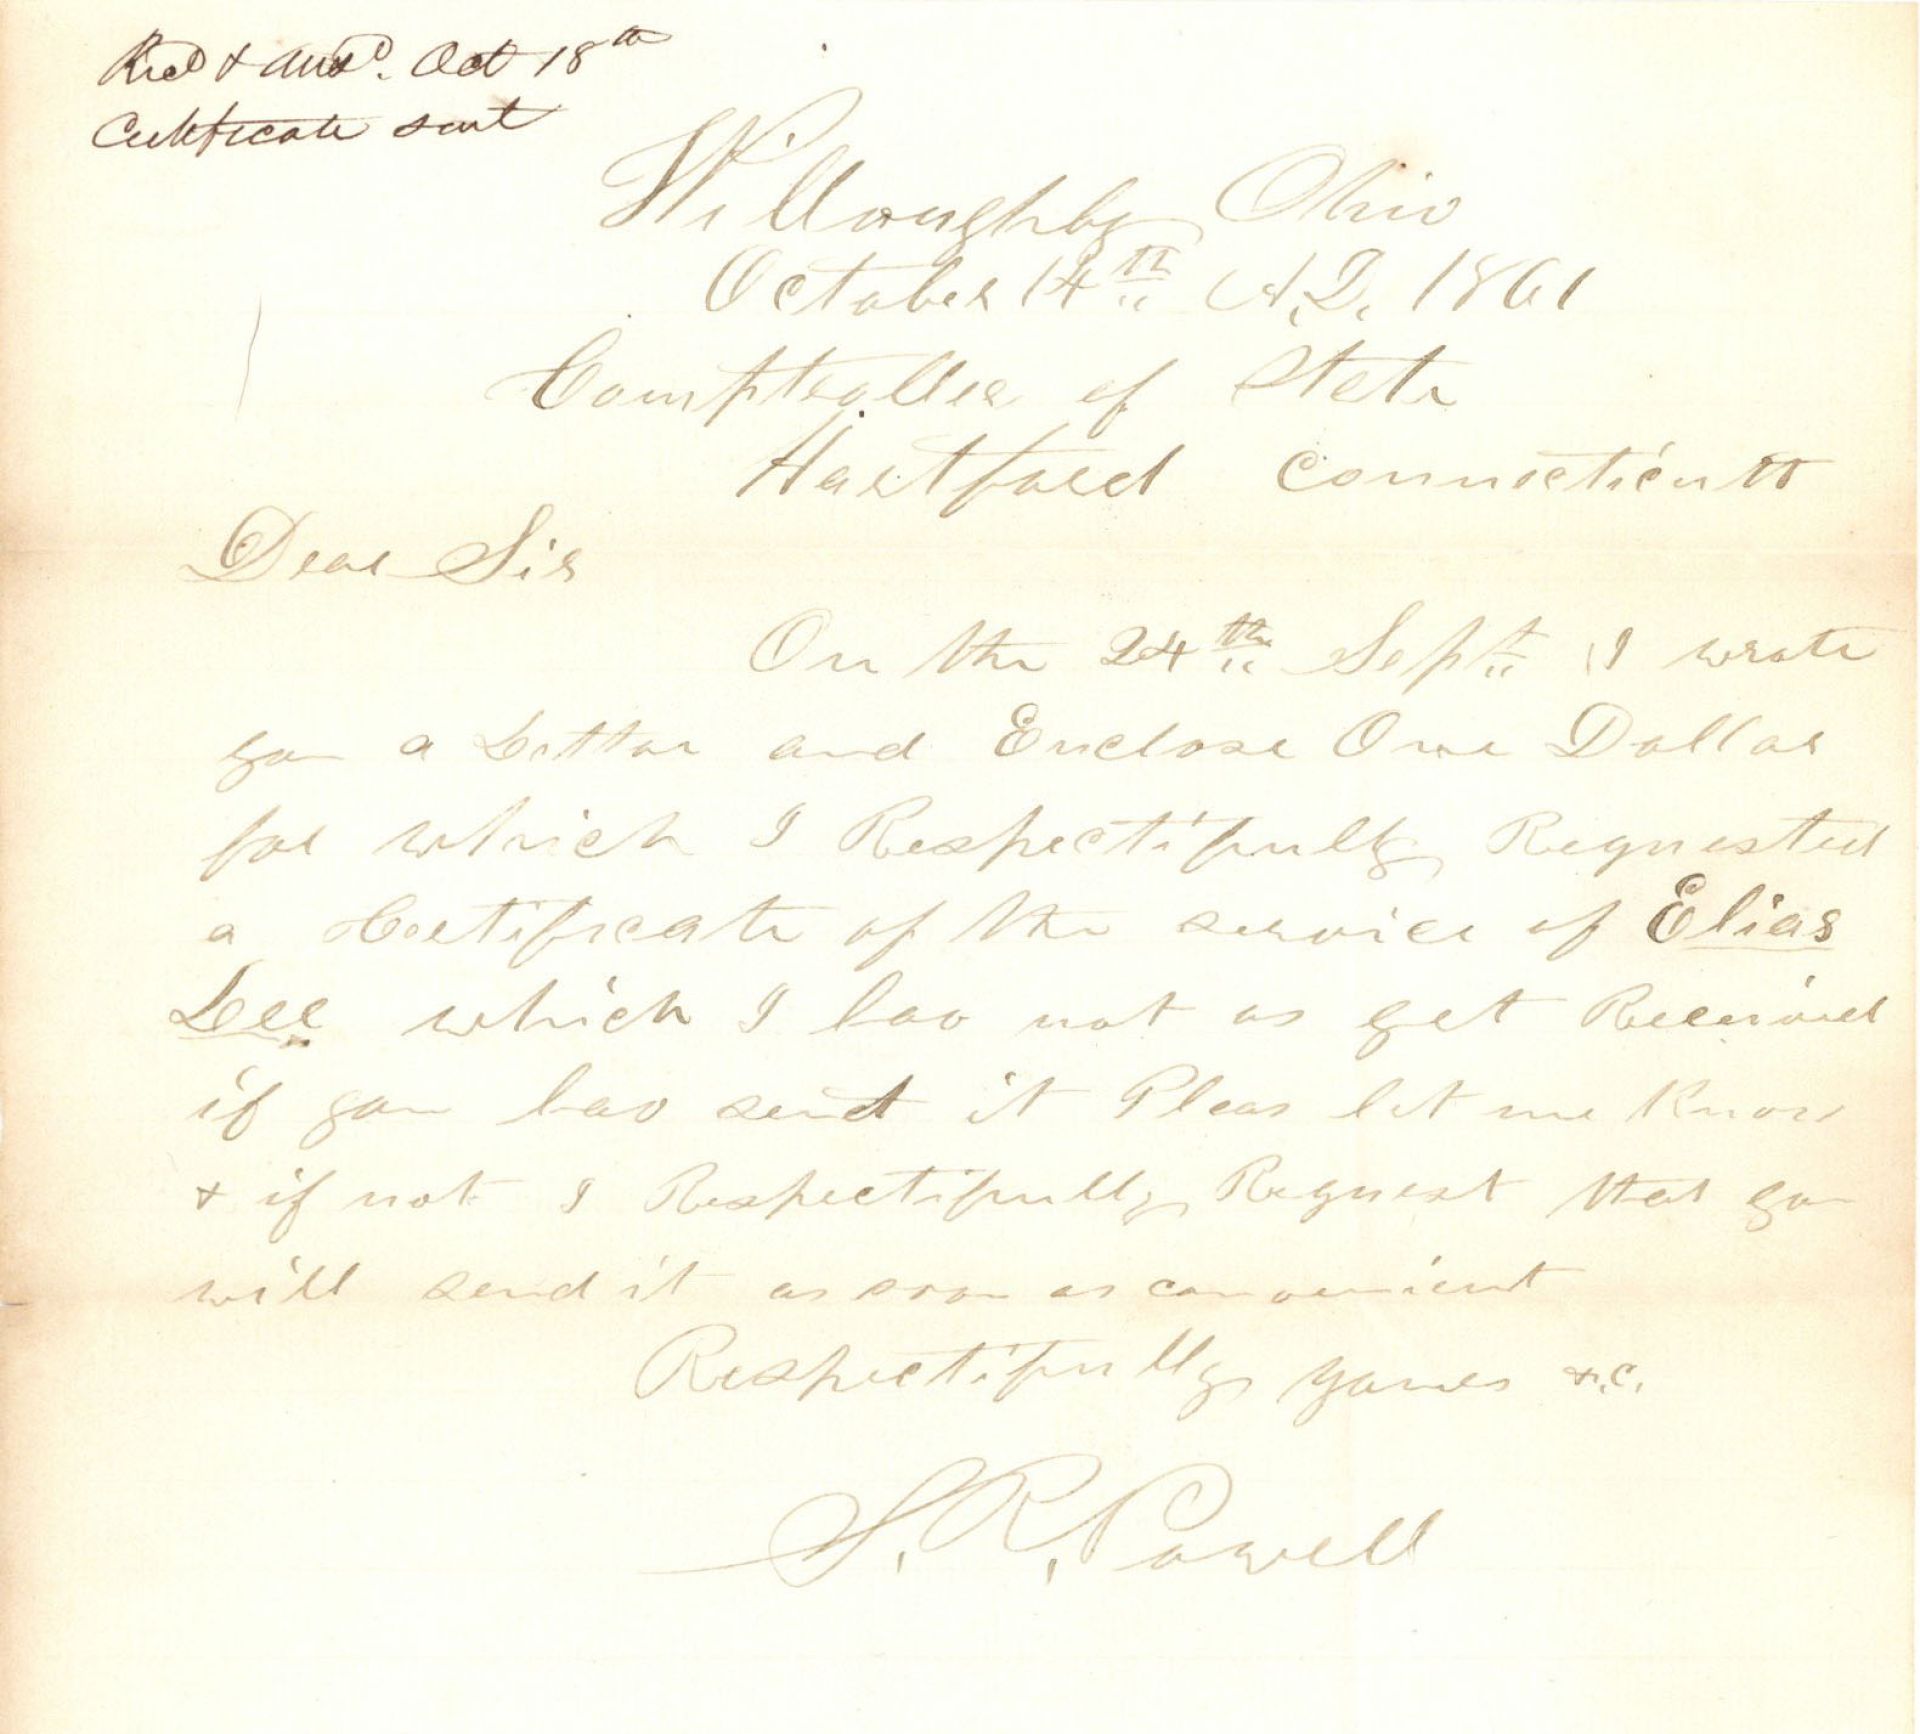 Recd & Ansd. Oct 18th
Certificate sent
Willoughby Ohio
October 14th A.D. 1861
Comptroller of State
Hartford Connecticutt
Dear Sir
On the 24th Sept. I wrote
you a Letter and Enclose One Dollar
for which I Respectifully Requested
a Certificate of the service of Elias
Lee which I hav not as yet Received
if you hav send it Pleas let me Know
& if not I Respectifully Request that you
will send it as soon as convenient
Respectifully yours &.c.
S. R. Powell